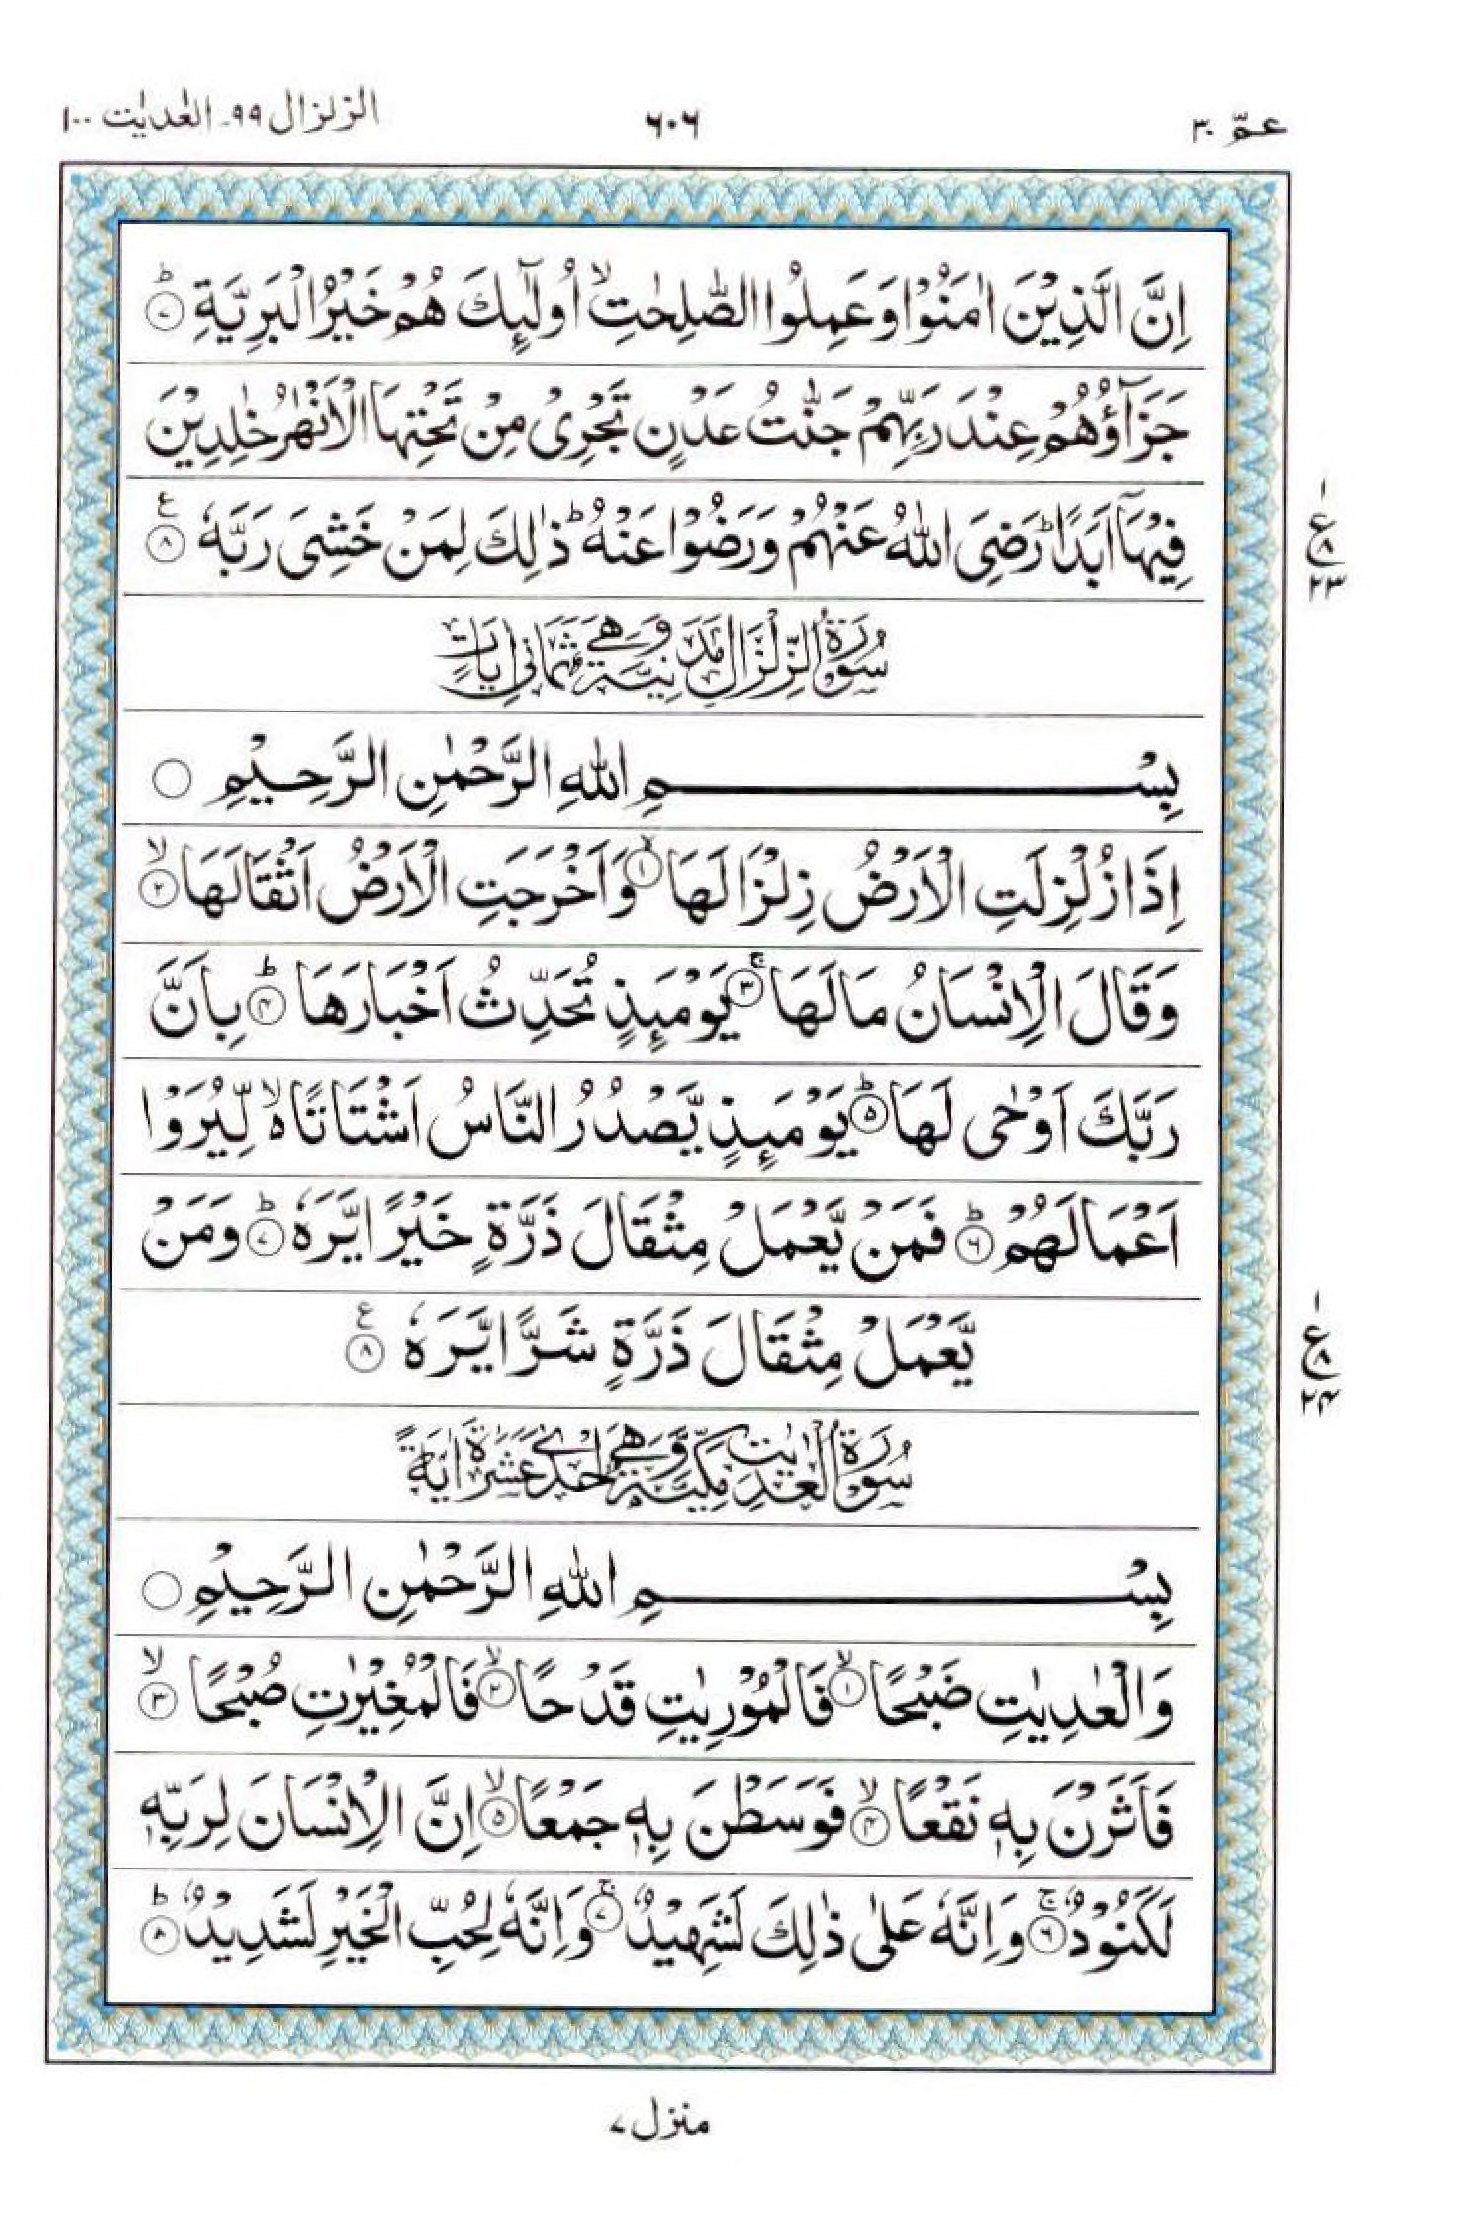 عمّ ٣٠
٦٠٦
الزلزال ٩٩۔ العٰدیٰت ١٠٠
اِنَّ الَّذِيْنَ اٰمَنُوْا وَعَمِلُوا الصّٰلِحٰتِ ۙ اُولٰٓئِكَ هُمْ خَيْرُ الْبَرِيَّةِ ؕ ۷
جَزَآؤُهُمْ عِنْدَ رَبِّهِمْ جَنّٰتُ عَدْنٍ تَجْرِىْ مِنْ تَحْتِهَا الْاَنْهٰرُ خٰلِدِيْنَ
فِيْهَاۤ اَبَدًا ؕ رَضِىَ اللّٰهُ عَنْهُمْ وَرَضُوْا عَنْهُ ؕ ذٰلِكَ لِمَنْ خَشِىَ رَبَّهٗ ۸ ع
١ ع ٨ ٢٣
سُوْرَةُ الزِّلْزَالِ مَدَنِيَّةٌ وَّهِىَ ثَمَانِىْ اٰيَاتٍ
بِسْمِ اللّٰهِ الرَّحْمٰنِ الرَّحِيْمِ
اِذَا زُلْزِلَتِ الْاَرْضُ زِلْزَالَهَا ۙ ۱ وَاَخْرَجَتِ الْاَرْضُ اَثْقَالَهَا ۙ ۲
وَقَالَ الْاِنْسَانُ مَا لَهَا ۚ ۳ يَوْمَئِذٍ تُحَدِّثُ اَخْبَارَهَا ؕ ۴ بِاَنَّ
رَبَّكَ اَوْحٰى لَهَا ؕ ۵ يَوْمَئِذٍ يَّصْدُرُ النَّاسُ اَشْتَاتًا ۙ۬ لِّيُرَوْا
اَعْمَالَهُمْ ؕ ۶ فَمَنْ يَّعْمَلْ مِثْقَالَ ذَرَّةٍ خَيْرًا يَّرَهٗ ؕ ۷ وَمَنْ
يَّعْمَلْ مِثْقَالَ ذَرَّةٍ شَرًّا يَّرَهٗ ۸ ع
١ ع ٨ ٢۴
سُوْرَةُ الْعٰدِيٰتِ مَكِّيَّةٌ وَّهِىَ اِحْدٰى عَشَرَةَ اٰيَةً
بِسْمِ اللّٰهِ الرَّحْمٰنِ الرَّحِيْمِ
وَالْعٰدِيٰتِ ضَبْحًا ۙ ۱ فَالْمُوْرِيٰتِ قَدْحًا ۙ ۲ فَالْمُغِيْرٰتِ صُبْحًا ۙ ۳
فَاَثَرْنَ بِهٖ نَقْعًا ۙ ۴ فَوَسَطْنَ بِهٖ جَمْعًا ۙ ۵ اِنَّ الْاِنْسَانَ لِرَبِّهٖ
لَكَنُوْدٌ ۚ ۶ وَاِنَّهٗ عَلٰى ذٰلِكَ لَشَهِيْدٌ ۚ ۷ وَاِنَّهٗ لِحُبِّ الْخَيْرِ لَشَدِيْدٌ ؕ ۸
منزل ۷